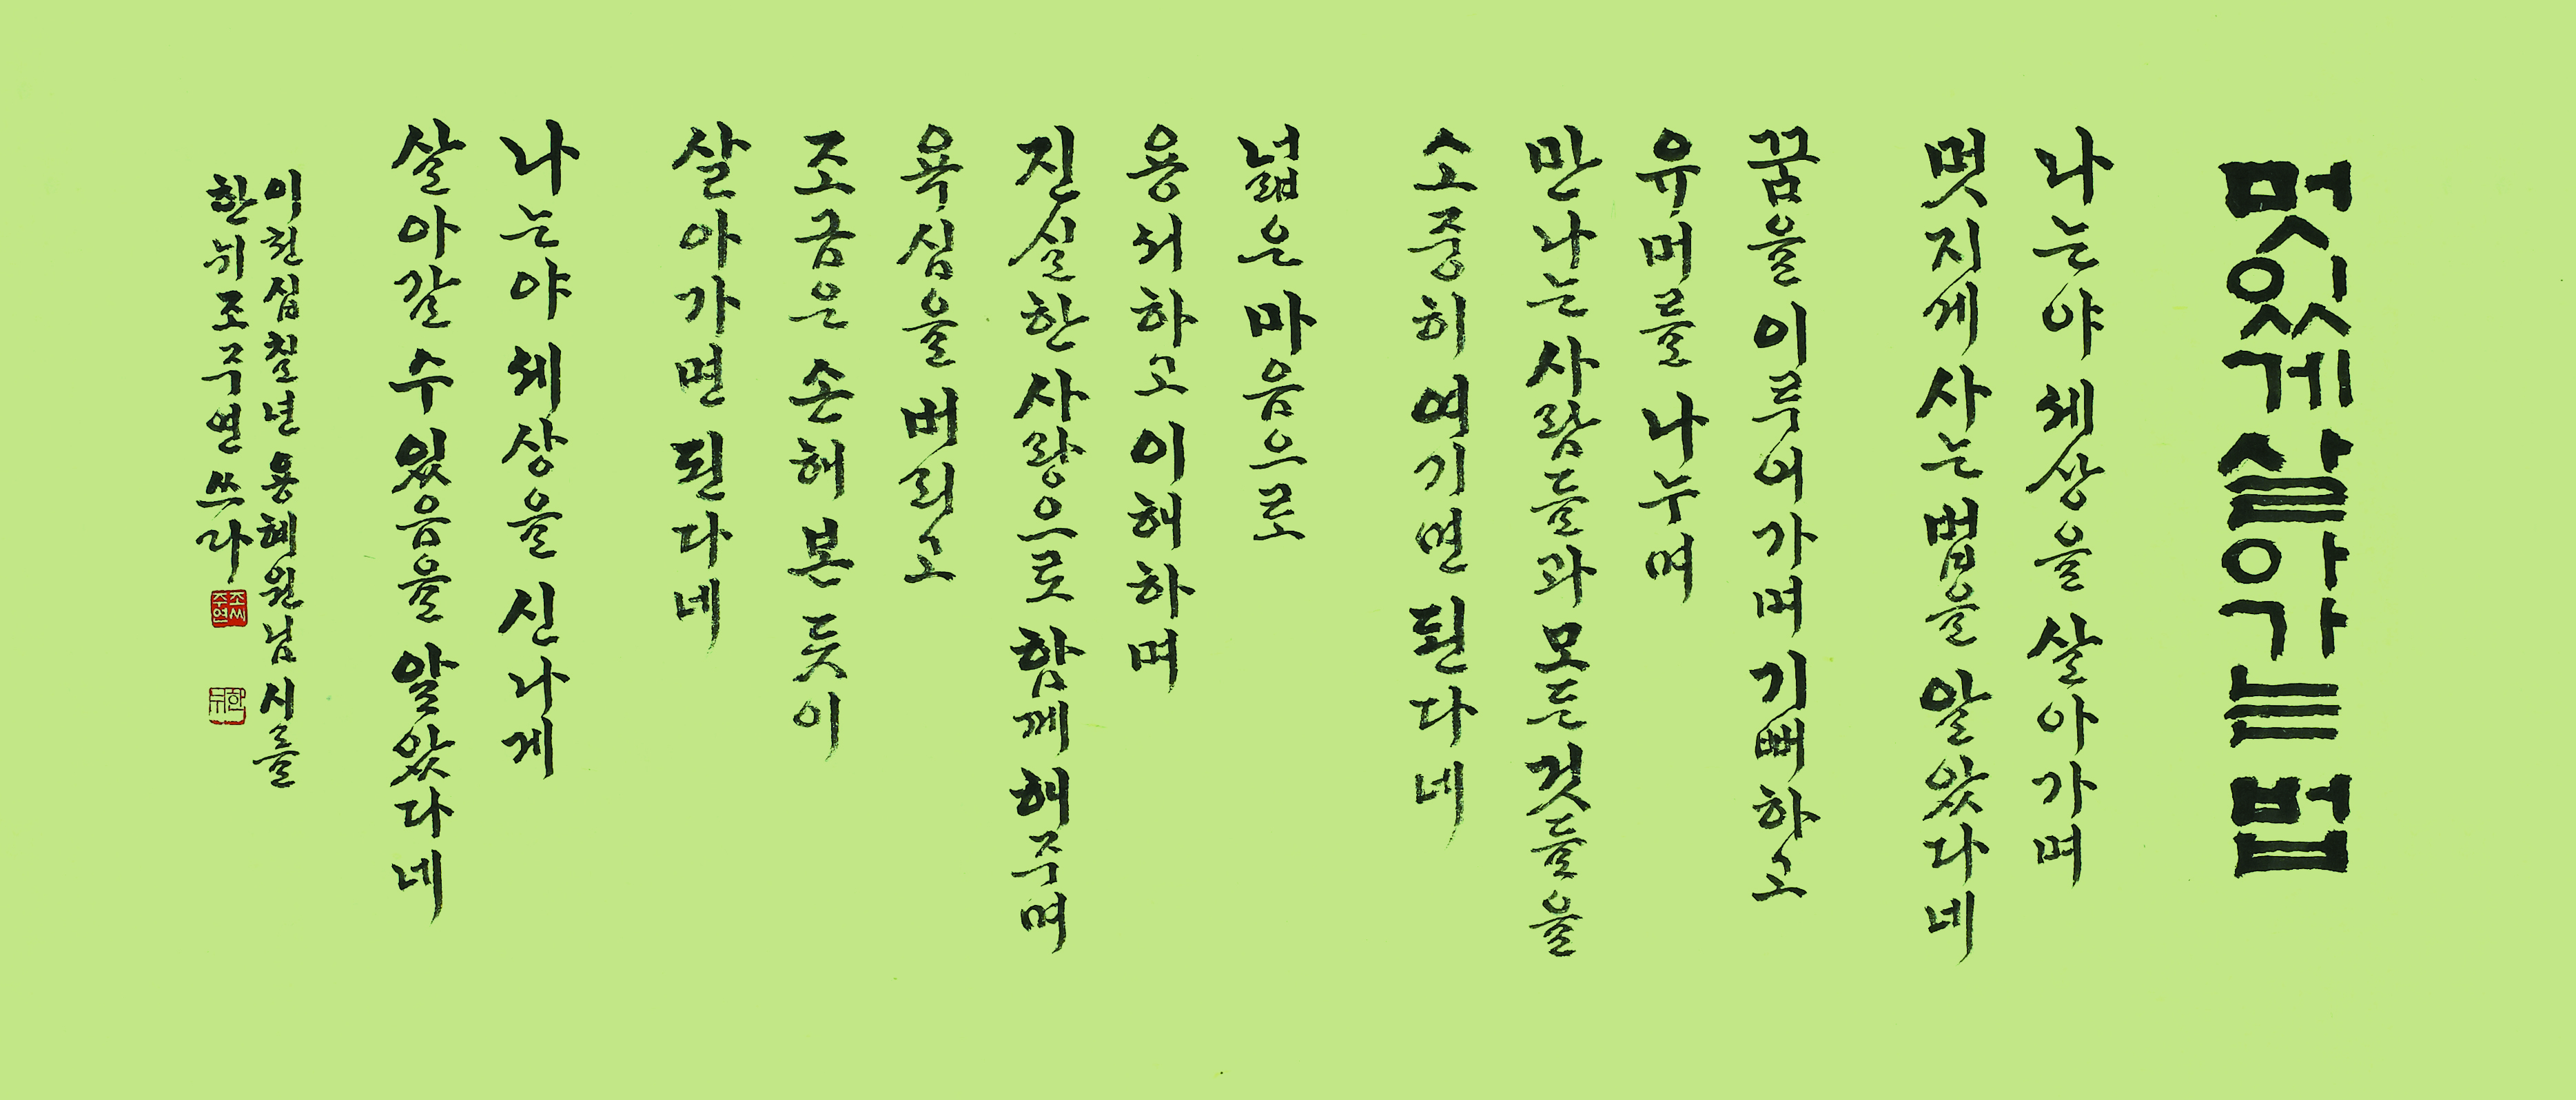 멋있게 살아가는 법
나는야 세상을 살아가며
멋지게 사는 법을 알았다네
꿈을 이루어가며 기뻐하고
유머를 나누며
만나는 사람들과 모든 것들을
소중히 여기면 된다네
넓은 마음으로
용서하고 이해하며
진실한 사랑으로 함께 해주며
욕심을 버리고
조금은 손해 본 듯이
살아가면 된다네
나는야 세상을 신나게
살아갈 수 있음을 알았다네
이천십칠년 용혜원님 시를
한뉘 조주연 쓰다
조씨주연
한뉘